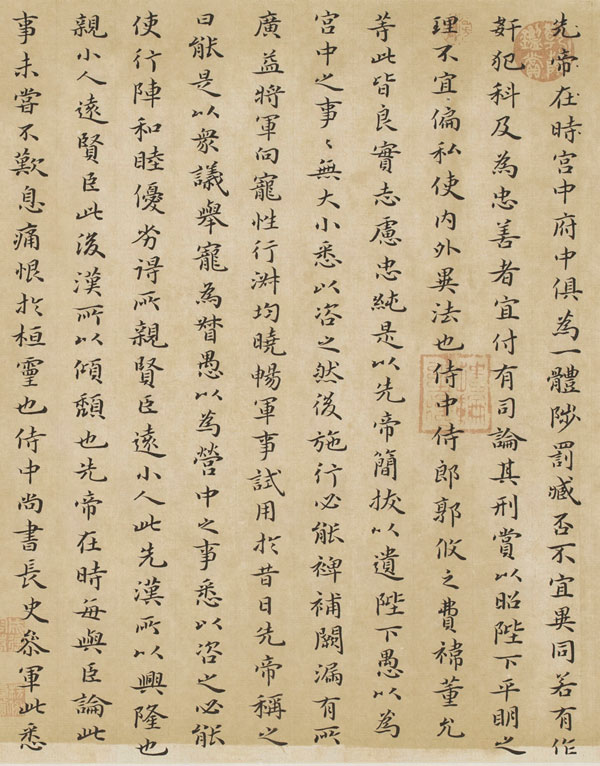 先帝在時宮中府中俱為一體陟罰臧否不宜異同若有作
姧犯科及為忠善者宜付有司論其刑賞以昭陛下平明之
理不宜偏私使內外異法也侍中侍郎郭攸之費禕董允
等此皆良實志慮忠純是以先帝簡拔以遺陛下愚以為
宮中之事〻無大小悉以咨之然後施行必能裨補闕漏有所
廣益將軍向寵性行淑均曉暢軍事試用於昔日先帝稱之
曰能是以衆議舉寵為督愚以為營中之事悉以咨之必能
使行陣和睦優劣得所親賢臣遠小人此先漢所以興隆也
親小人遠賢臣此後漢所以傾頹也先帝在時每與臣論此
事未嘗不歎息痛恨於桓靈也侍中尚書長史參軍此悉